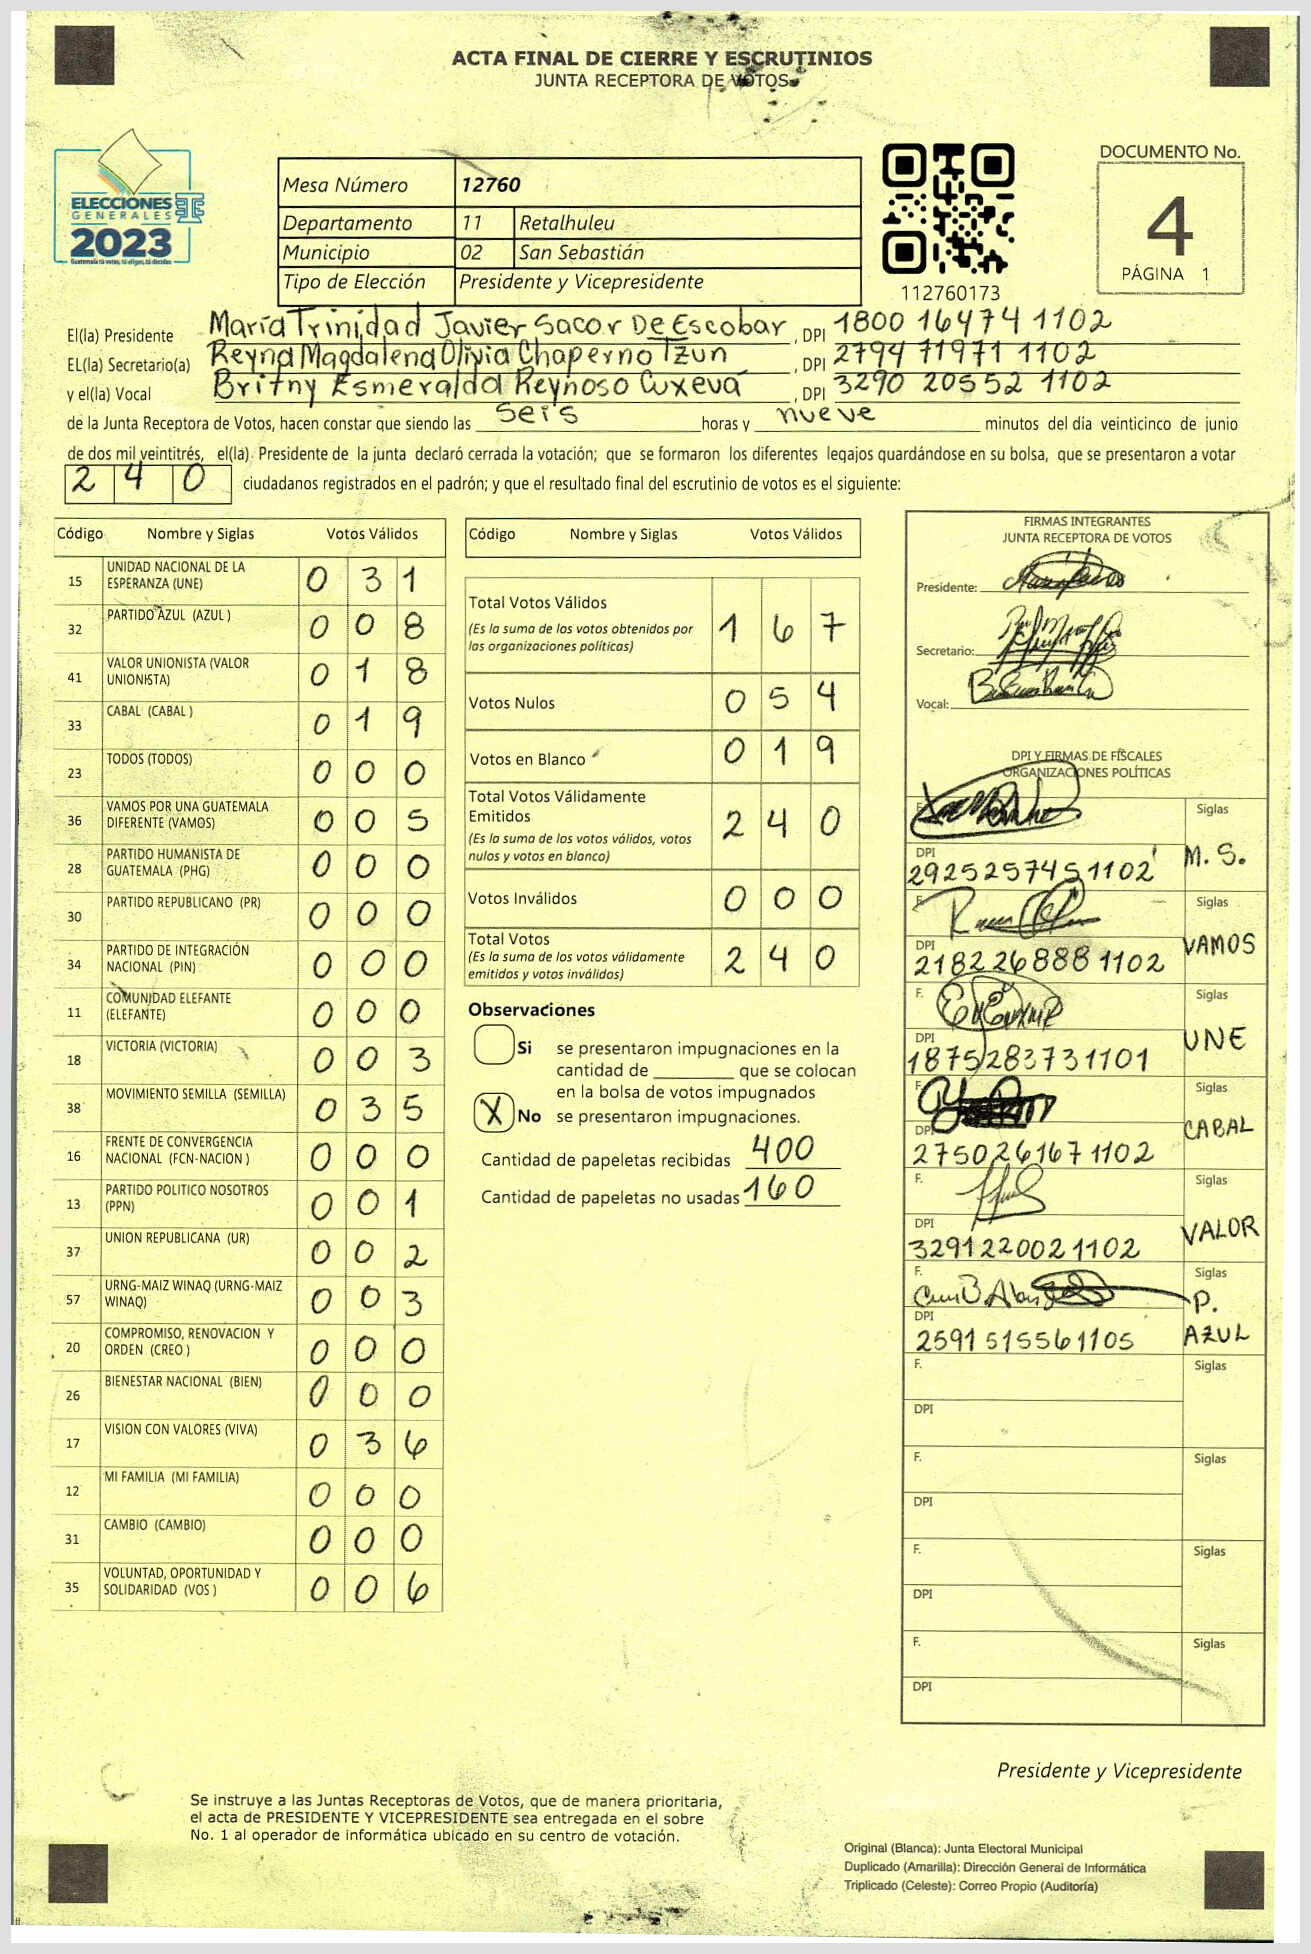 ACTA FINAL DE CIERRE Y ESCRUTINIOS
JUNTA RECEPTORA DE VOTOS
ELECCIONES
GENERALES
2023
Guatemala tú votas, tú eliges, tú decides
Mesa Número 12760
Departamento 11 Retalhuleu
Municipio 02 San Sebastián
Tipo de Elección Presidente y Vicepresidente
112760173
DOCUMENTO No.
4
PÁGINA 1
El(la) Presidente María Trinidad Javier Sacor De Escobar, DPI 1800 16474 1102
EL(la) Secretario(a) Reyna Magdalena Olivia Chaperno Tzun, DPI 2794 71971 1102
y el(la) Vocal Britny Esmeralda Reynoso Cuxevá, DPI 3290 20552 1102
de la Junta Receptora de Votos, hacen constar que siendo las seis horas y nueve minutos del día veinticinco de junio
de dos mil veintitrés, el(la) Presidente de la junta declaró cerrada la votación; que se formaron los diferentes legajos guardándose en su bolsa, que se presentaron a votar
240 ciudadanos registrados en el padrón; y que el resultado final del escrutinio de votos es el siguiente:
Código Nombre y Siglas Votos Válidos
15 UNIDAD NACIONAL DE LA ESPERANZA (UNE) 0 3 1
32 PARTIDO AZUL (AZUL ) 0 0 8
41 VALOR UNIONISTA (VALOR UNIONISTA) 0 1 8
33 CABAL (CABAL ) 0 1 9
23 TODOS (TODOS) 0 0 0
36 VAMOS POR UNA GUATEMALA DIFERENTE (VAMOS) 0 0 5
28 PARTIDO HUMANISTA DE GUATEMALA (PHG) 0 0 0
30 PARTIDO REPUBLICANO (PR) 0 0 0
34 PARTIDO DE INTEGRACIÓN NACIONAL (PIN) 0 0 0
11 COMUNIDAD ELEFANTE (ELEFANTE) 0 0 0
18 VICTORIA (VICTORIA) 0 0 3
38 MOVIMIENTO SEMILLA (SEMILLA) 0 3 5
16 FRENTE DE CONVERGENCIA NACIONAL (FCN-NACION ) 0 0 0
13 PARTIDO POLITICO NOSOTROS (PPN) 0 0 1
37 UNION REPUBLICANA (UR) 0 0 2
57 URNG-MAIZ WINAQ (URNG-MAIZ WINAQ) 0 0 3
20 COMPROMISO, RENOVACION Y ORDEN (CREO ) 0 0 0
26 BIENESTAR NACIONAL (BIEN) 0 0 0
17 VISION CON VALORES (VIVA) 0 3 6
12 MI FAMILIA (MI FAMILIA) 0 0 0
31 CAMBIO (CAMBIO) 0 0 0
35 VOLUNTAD, OPORTUNIDAD Y SOLIDARIDAD (VOS ) 0 0 6
Código Nombre y Siglas Votos Válidos
Total Votos Válidos 1 6 7
(Es la suma de los votos obtenidos por
las organizaciones políticas)
Votos Nulos 0 5 4
Votos en Blanco 0 1 9
Total Votos Válidamente
Emitidos 2 4 0
(Es la suma de los votos válidos, votos
nulos y votos en blanco)
Votos Inválidos 0 0 0
Total Votos 2 4 0
(Es la suma de los votos válidamente
emitidos y votos inválidos)
Observaciones
Si se presentaron impugnaciones en la
cantidad de ________ que se colocan
en la bolsa de votos impugnados
X No se presentaron impugnaciones.
Cantidad de papeletas recibidas 400
Cantidad de papeletas no usadas 160
FIRMAS INTEGRANTES
JUNTA RECEPTORA DE VOTOS
Presidente:
Secretario:
Vocal:
DPI Y FIRMAS DE FISCALES
ORGANIZACIONES POLÍTICAS
F. Siglas
DPI 2925257451102 M.S.
F. Siglas
DPI 2182268881102 VAMOS
F. Siglas
DPI 1875283731101 UNE
F. Siglas
DPI 2750261671102 CABAL
F. Siglas
DPI 3291220021102 VALOR
F. Siglas
DPI 2591515561105 P. AZUL
F. Siglas
DPI
F. Siglas
DPI
F. Siglas
DPI
F. Siglas
DPI
Presidente y Vicepresidente
Se instruye a las Juntas Receptoras de Votos, que de manera prioritaria,
el acta de PRESIDENTE Y VICEPRESIDENTE sea entregada en el sobre
No. 1 al operador de informática ubicado en su centro de votación.
Original (Blanca): Junta Electoral Municipal
Duplicado (Amarilla): Dirección General de Informática
Triplicado (Celeste): Correo Propio (Auditoría)